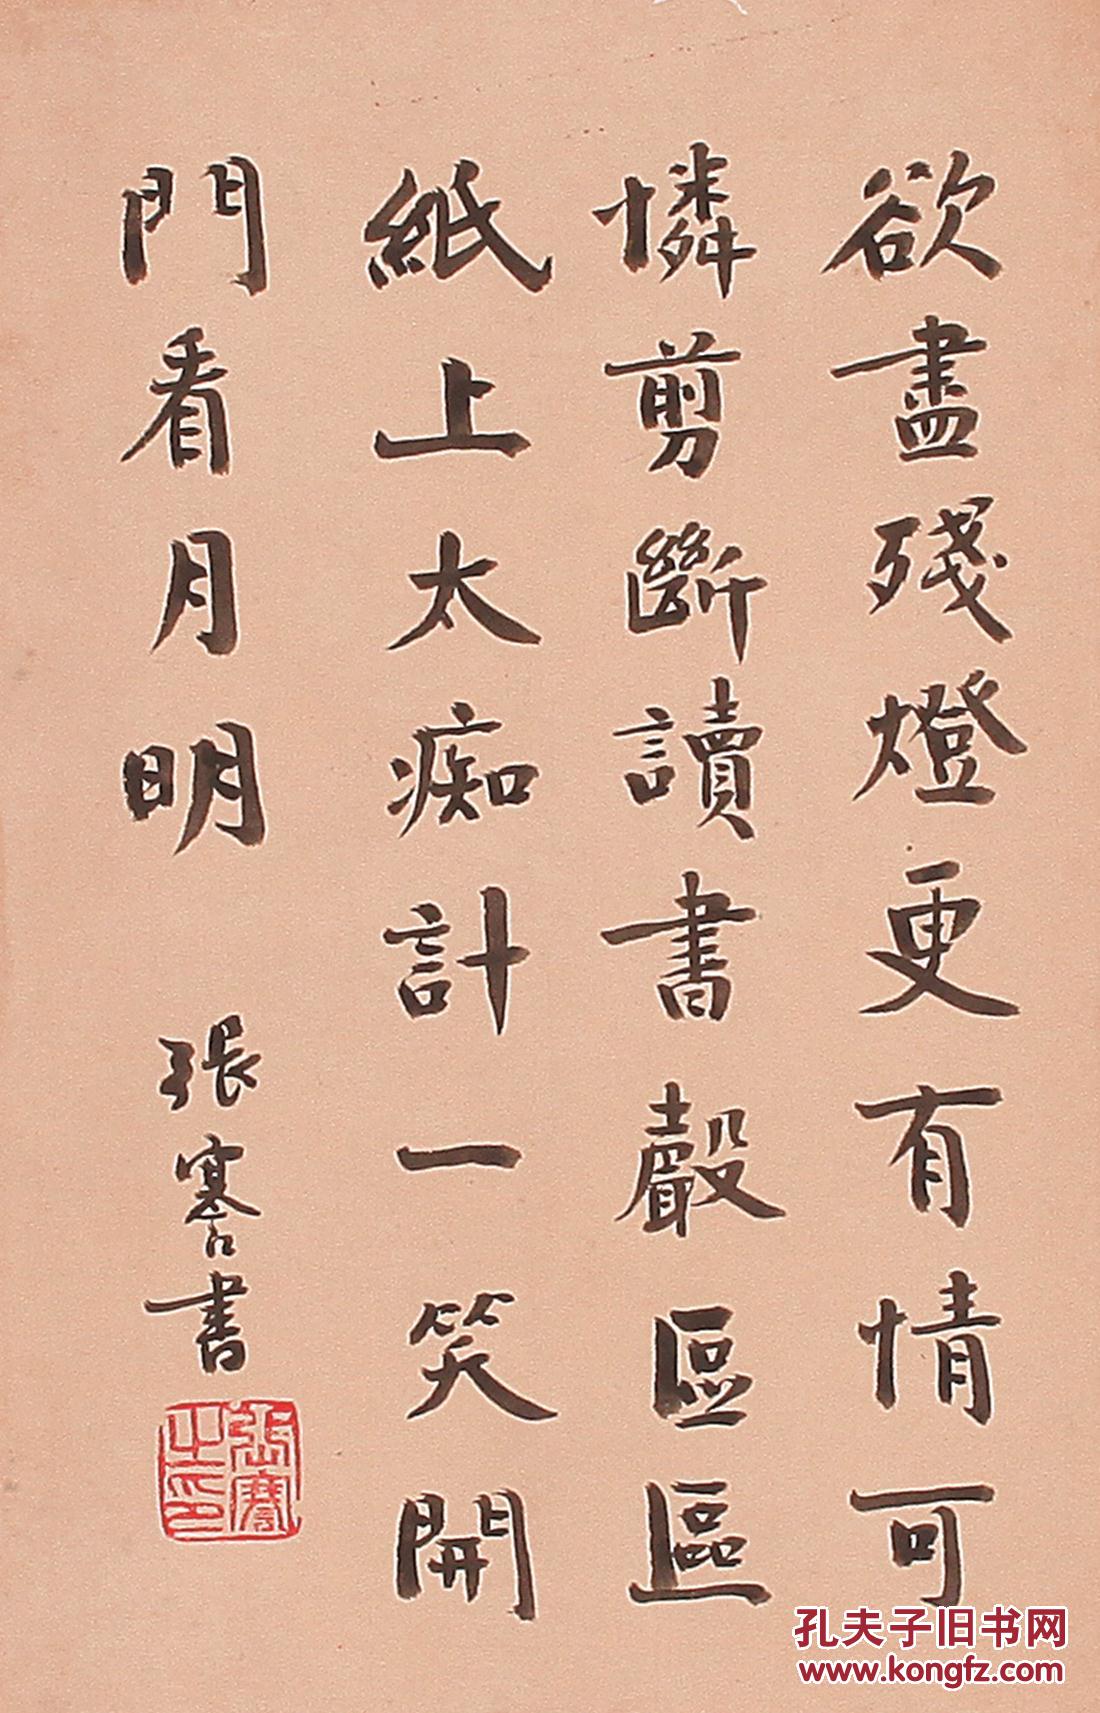 欲盡殘燈更有情可
憐剪斷讀書聲區區
紙上太痴計一笑開
門看月明
張謇書
張謇之印
孔夫子旧书网
www.kongfz.com